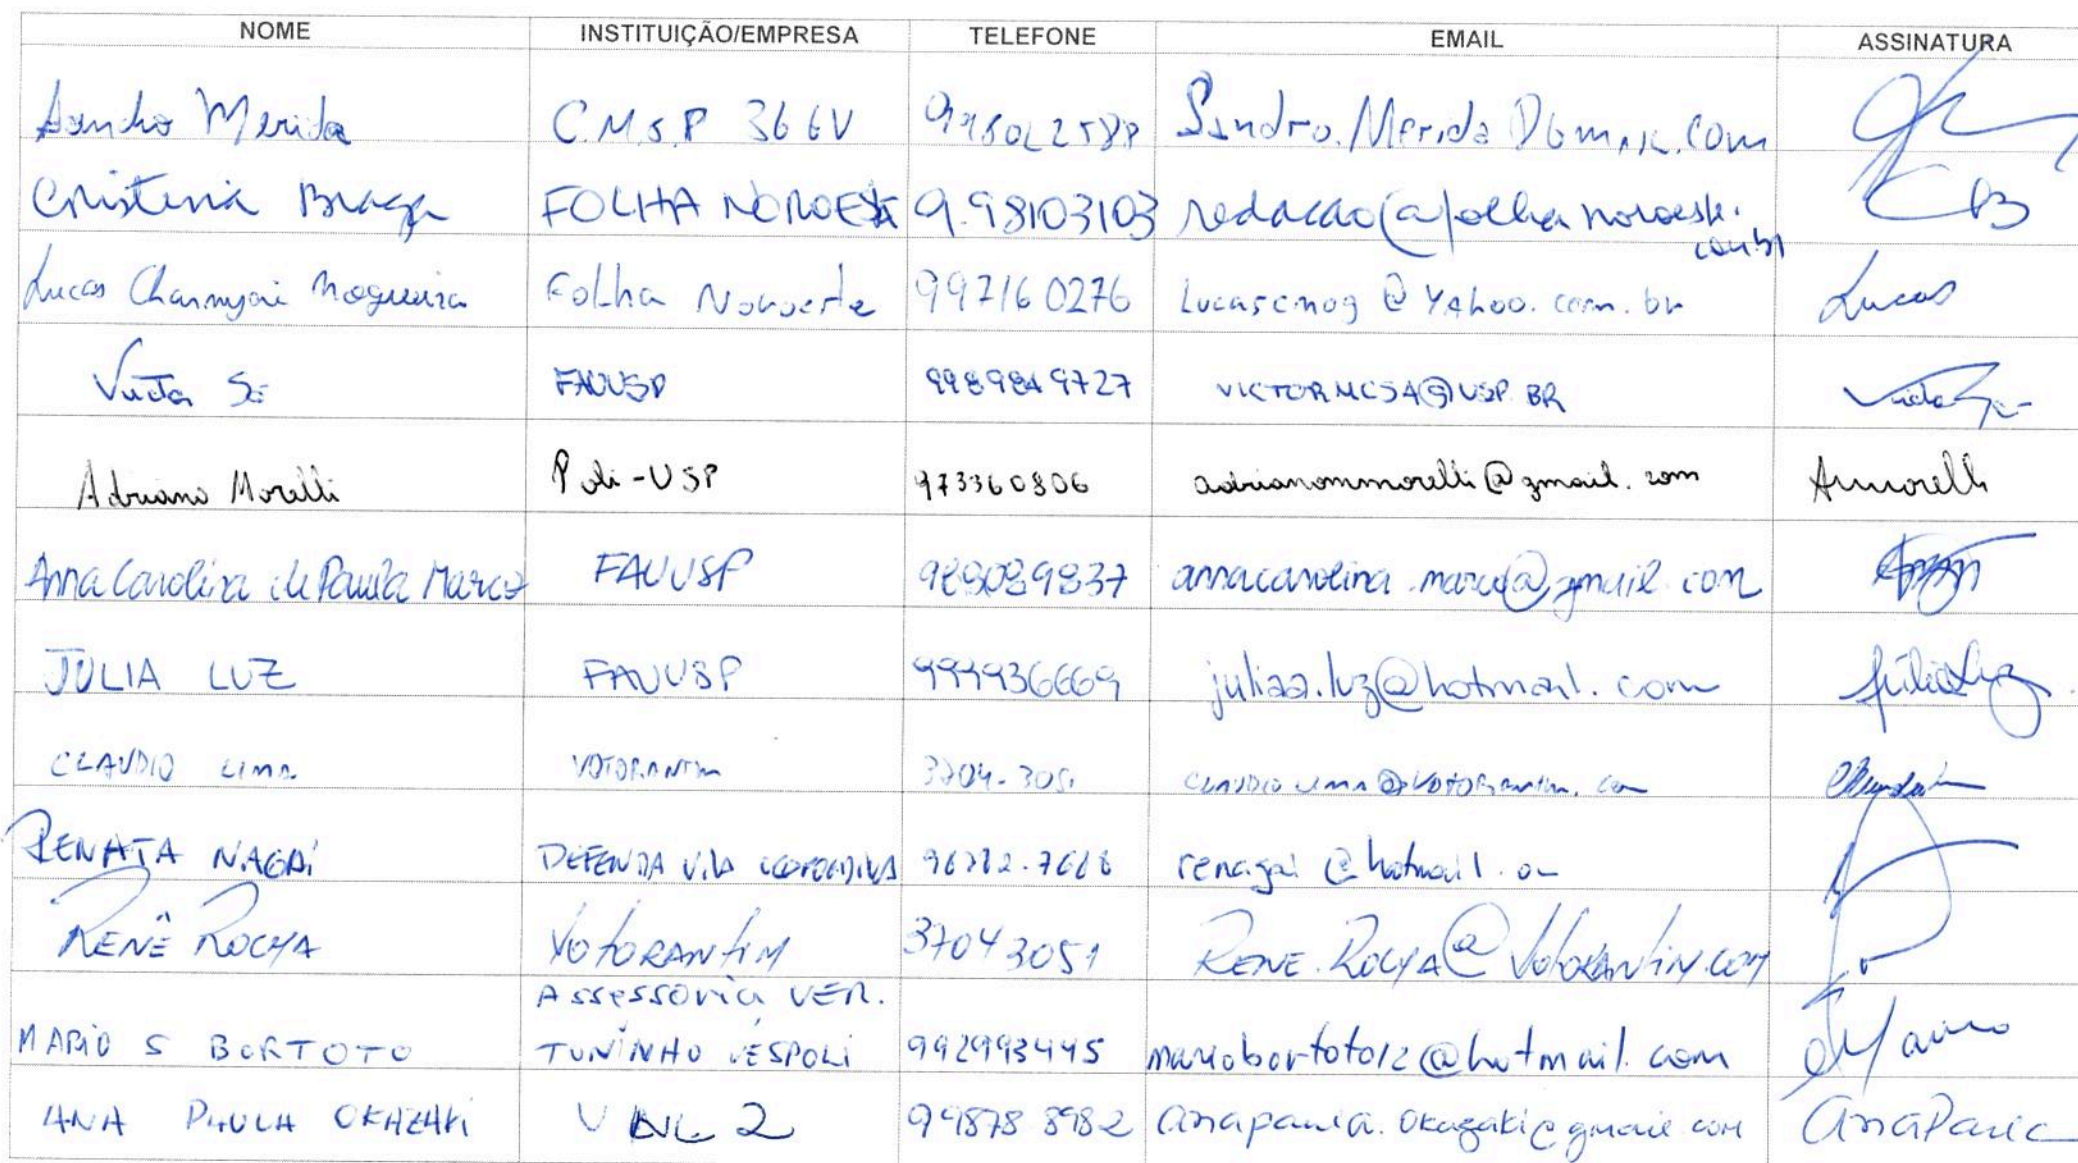 NOME INSTITUIÇÃO/EMPRESA TELEFONE EMAIL ASSINATURA
Sandro Merida C.M.S.P 366V Sandro.Merida
Cristina Braga FOLHA NOROESTE 9.98103103 redacao@folhanoroeste.
com.br
Lucas Nogueira Folha Noroeste 997160276 Lucascnog@Yahoo.com.br Lucas
Victor Sá FAUUSP 998984 9727 VICTORMCSA@USP.BR
Adriano Morelli Poli-USP 973360806 adrianommorelli@gmail.com Ammorelli
Anna Carolina de Paula Marco FAUUSP 989089837 annacarolina.marco@gmail.com
JÚLIA LUZ FAUUSP 999936669 juliaa.luz@hotmail.com Júlia Luz
CLAUDIO LIMA VOTORANTIM 3704-3051 CLAUDIO.LIMA@VOTORANTIM.com
RENATA NAGAI DEFENDA VILA LEOPOLDINA renagai@hotmail.
RENÊ ROCHA VOTORANTIM 37043051 RENE.ROCHA@VOTORANTIM.COM
Assessoria VER.
MARIO S BORTOTO TONINHO VESPOLI 992993445 mariobortoto12@hotmail.com Mario
ANA PAULA OKAZAKI 99878 8982 anapaula.okazaki@gmail.com Ana Paula